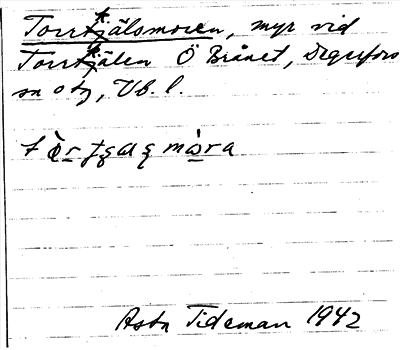 Torrkjälsmoren, myr vid
Torrkjälen Ö Brånet, Degerfors
sn o tg, Vb. l.
Asta Tideman 1942